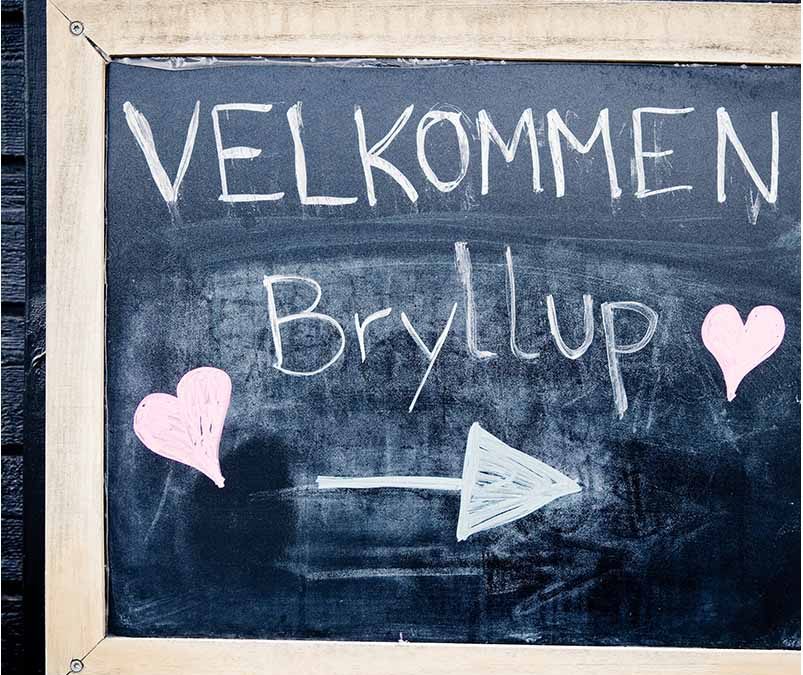 VELKOMMEN
Bryllup